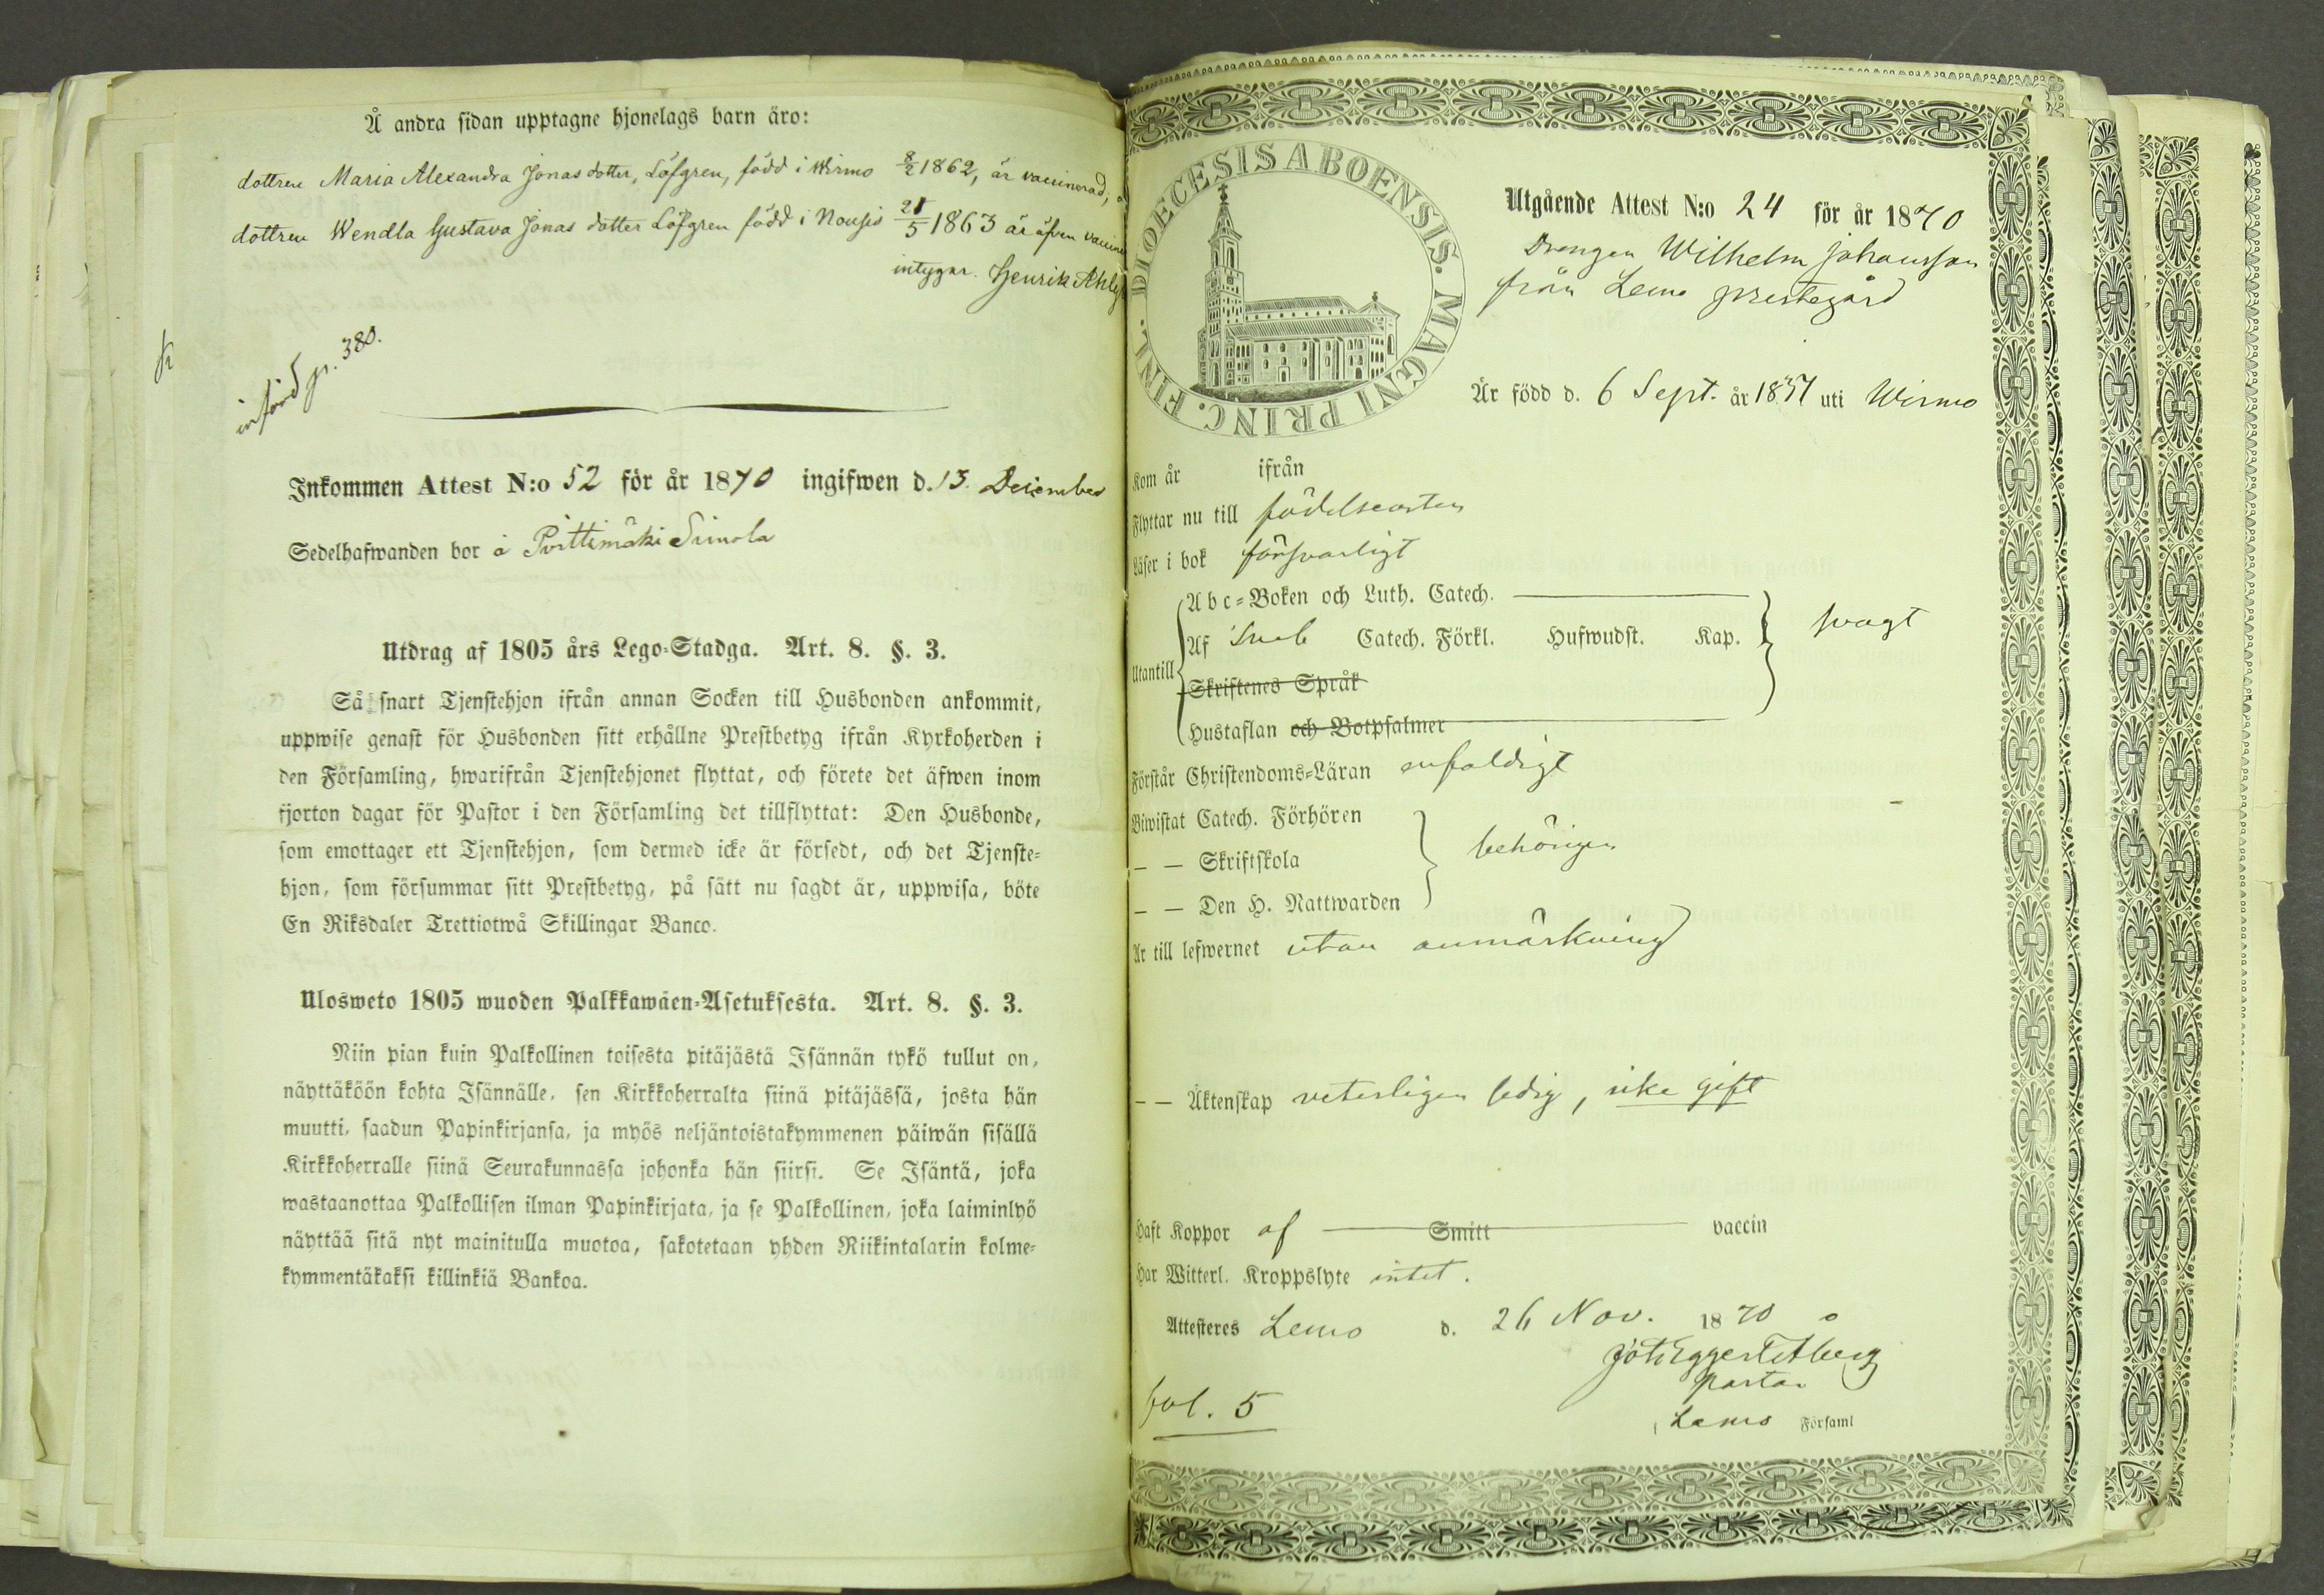 Å andra sidan upptagne hjonelags barn äro:
dottren Maria Alexandra Jonasdotter, Löfgren, född i Wirmo 8/2 1862, är vaccinerad,
dottren Wendla Gustava Jonas dotter Löfgren född i Nousis 21/5 1863 är äfven
intygar. Henrik
införd p. 380.
Inkommen Attest N:o 52 för år 1870 ingifwen d. 13. December
Sedelhafwanden bor å Pirttimäki Simola
Utdrag af 1805 års Lego-Stadga. Art. 8. §. 3.
Så snart Tjenstehjon ifrån annan Socken till Husbonden ankommit,
uppwise genast för Husbonden sitt erhållne Prestbetyg ifrån Kyrkoherden i
den Församling, hwarifrån Tjenstehjonet flyttat, och förete det äfwen inom
fjorton dagar för Pastor i den Församling det tillflyttat: Den Husbonde,
som emottager ett Tjenstehjon, som dermed icke är försedt, och det Tjenste-
hjon, som försummar sitt Prestbetyg, på sätt nu sagdt är, uppwisa, böte
En Riksdaler Trettiotwå Skillingar Banco.
Ulosweto 1805 wuoden Palkkawäen-Asetuksesta. Art. 8. §. 3.
Niin pian kuin Palkollinen toisesta pitäjästä Isännän tykö tullut on,
näyttäköön kohta Isännälle, sen Kirkkoherralta siinä pitäjässä, josta hän
muutti, saadun Papinkirjansa, ja myös neljäntoistakymmenen päiwän sisällä
Kirkkoherralle siinä Seurakunnassa johonka hän siirsi. Se Isäntä, joka
wastaanottaa Palkollisen ilman Papinkirjata, ja se Palkollinen, joka laiminlyö
näyttää sitä nyt mainitulla muotoa, sakotetaan yhden Riikintalarin kolme-
kymmentäkaksi killinkiä Bankoa.
DIOECESIS ABOENSIS. MAGNI PRINC. FINL.
Utgående Attest N:o 24 för år 1870
Drengen Wilhelm Johansson
från Lemo prestegård
Är född d. 6 Sept. år 1837 uti Wirmo
Kom år ifrån
Flyttar nu till födelseorten
Läser i bok försvarligt
Abc-Boken och Luth. Catech.
Utantill Af Catech. Förkl. Hufwudst. Kap. svagt
Skriftenes Språk
Hustaflan och Botpsalmer
Förstår Christendoms-Läran enfaldigt
Biwistat Catech. Förhören
— — Skriftskola behörigen
— — Den H. Nattwarden
Är till lefwernet utan anmärkning
— — Äktenskap veterligen ledig, icke gift
Haft Koppor af Smitt vaccin
Har Witterl. Kroppslyte intet.
Attesteres Lemo d. 26 Nov. 1870
pastor
fol. 5
Lemo Församl